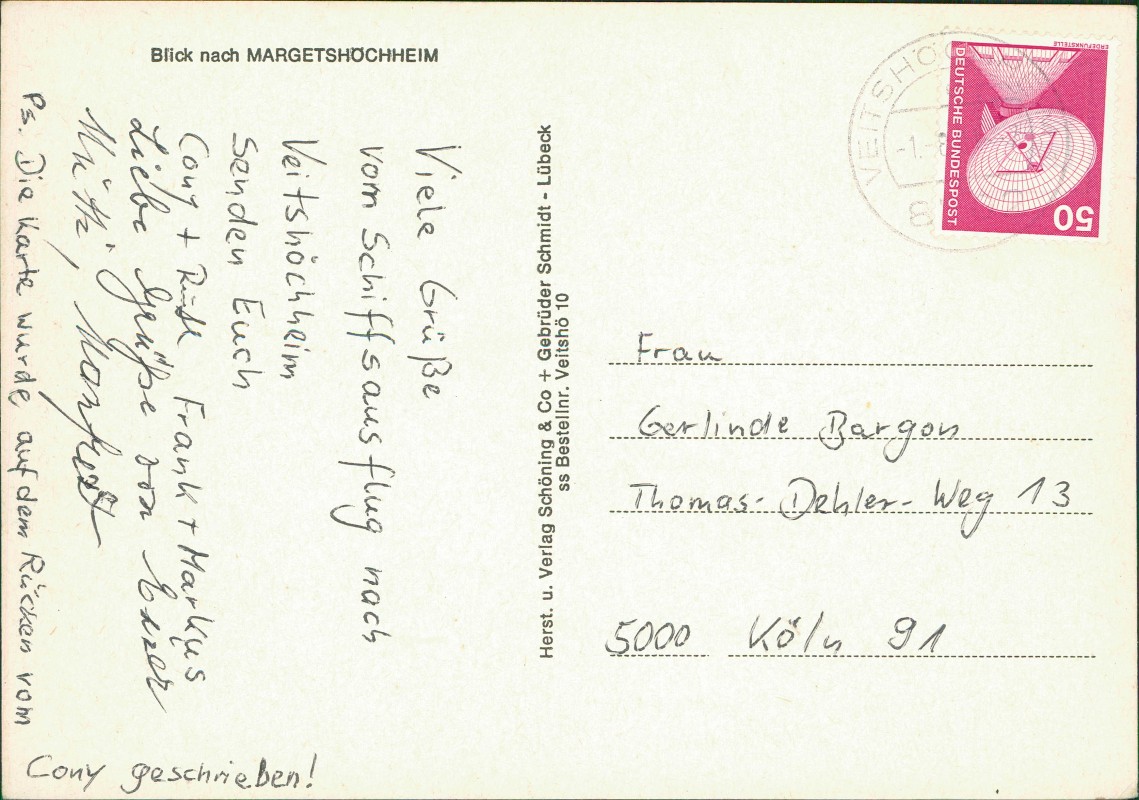 Blick nach MARGETSHÖCHHEIM
Viele Grüße
vom Schiffsausflug nach
Veitshöchheim
senden Euch
Cony + Frank + Markus
Liebe Grüße von Eurer
Manfred
Ps. Die Karte wurde auf dem Rücken vom
Cony geschrieben!
Herst. u. Verlag Schöning & Co + Gebrüder Schmidt - Lübeck
ss Bestellnr. Veitshö 10
VEITSHÖCH
-1.
8
ERDEFUNKSTELLE
DEUTSCHE BUNDESPOST
50
Frau
Gerlinde Bargon
Thomas-Dehler-Weg 13
5000 Köln 91